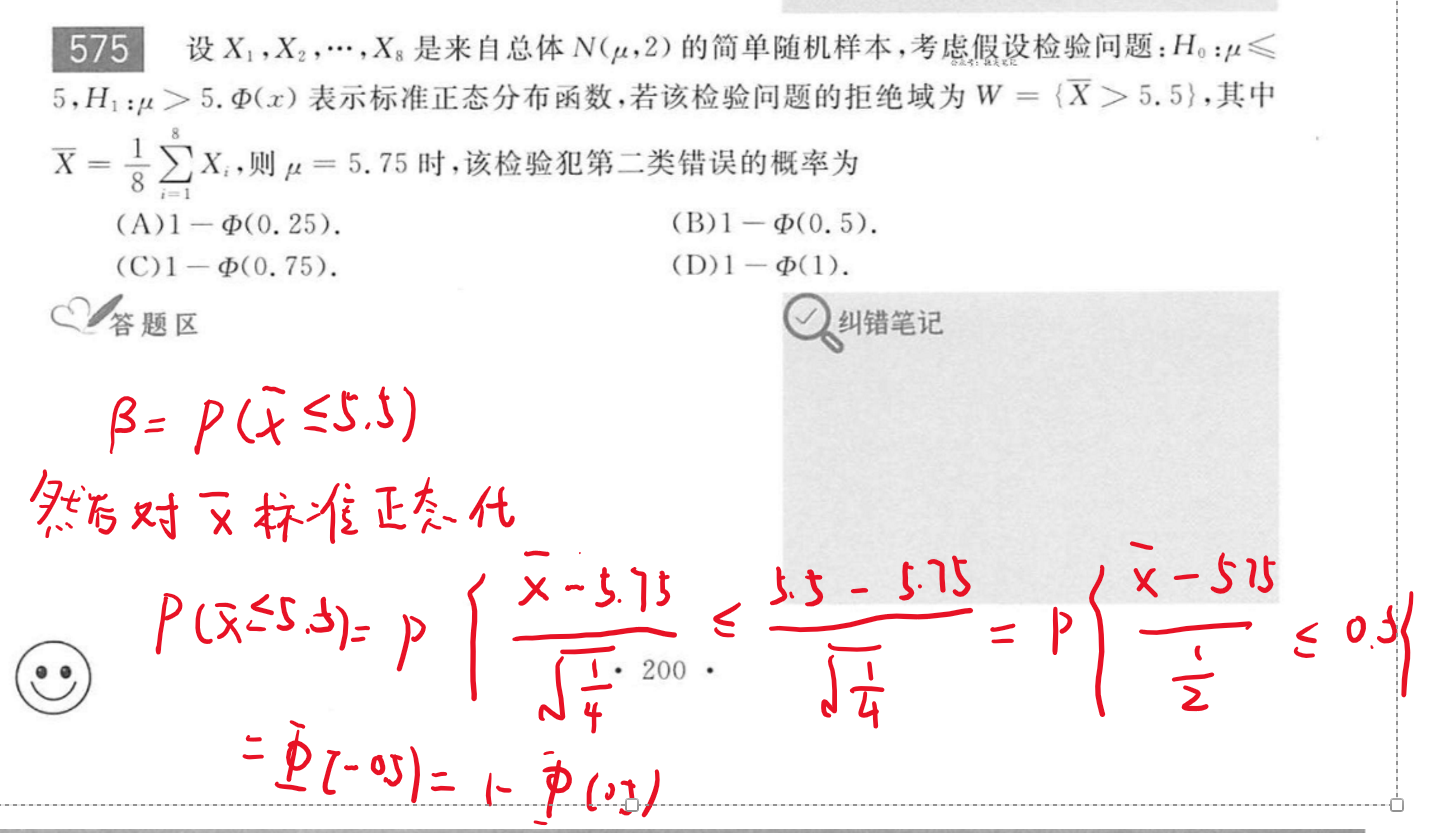 575 设 X₁,X₂,⋯,X₈ 是来自总体 N(μ,2) 的简单随机样本,考虑假设检验问题:H₀:μ⩽
5,H₁:μ＞5.Φ(x) 表示标准正态分布函数,若该检验问题的拒绝域为 W = {X̅＞5.5},其中
X̅ = 1/8 ∑_{i=1}^{8} Xᵢ,则 μ = 5.75 时,该检验犯第二类错误的概率为
(A)1－Φ(0.25). (B)1－Φ(0.5).
(C)1－Φ(0.75). (D)1－Φ(1).
答题区
纠错笔记
β= P(x̅ ≤5.5)
然后对 x̅ 标准正态化
P(x̅≤5.5)= P{ (x̅-5.75)/√(1/4) ≤ (5.5-5.75)/√(1/4) = P{ (x̅-5.75)/(1/2) ≤ 0.5}
· 200 ·
= Φ(-0.5)= 1- Φ(0.5)